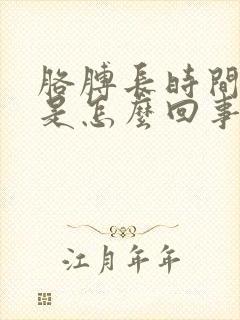 胳膊長時間
是怎麼回事
江月年年